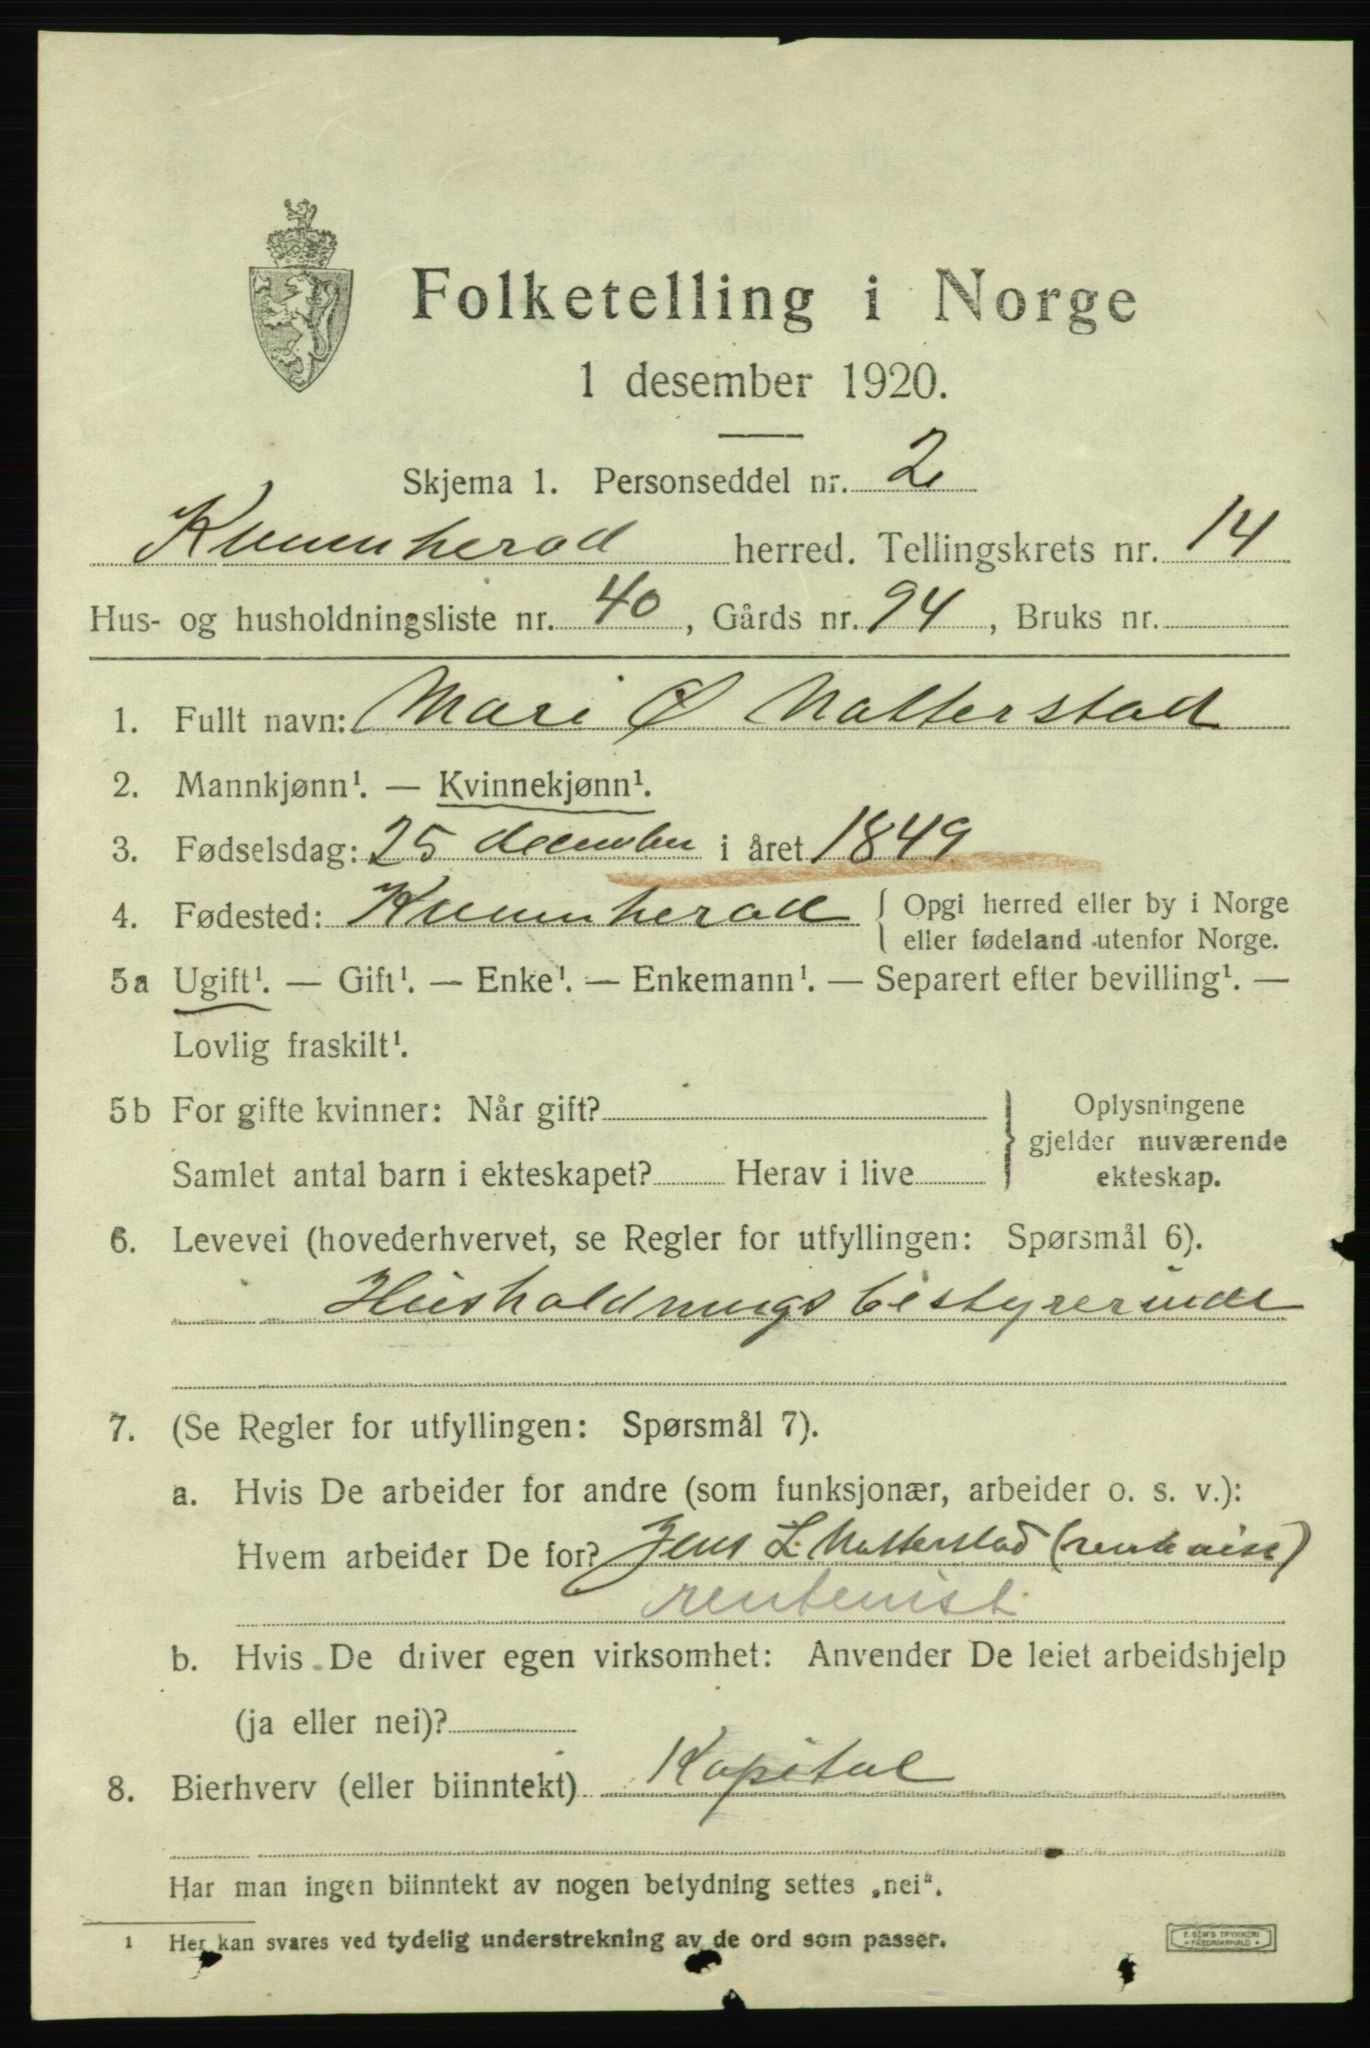 Folketelling i Norge
1 desember 1920.
Skjema 1. Personseddel nr. 2
Kvinnherad herred. Tellingskrets nr. 14
Hus- og husholdningsliste nr. 40, Gårds nr. 94, Bruks nr.
1. Fullt navn: Mari Ø Natterstad
2. Mannkjønn¹. — Kvinnekjønn¹.
3. Fødselsdag: 25 december i året 1849
4. Fødested: Kvinnherad { Opgi herred eller by i Norge
eller fødeland utenfor Norge.
5a Ugift¹. — Gift¹. — Enke¹. — Enkemann¹. — Separert efter bevilling¹. —
Lovlig fraskilt¹.
5b For gifte kvinner: Når gift? } Oplysningene
gjelder nuværende
Samlet antal barn i ekteskapet? Herav i live ekteskap.
6. Levevei (hovederhvervet, se Regler for utfyllingen: Spørsmål 6).
Husholdningsbestyrerinde
7. (Se Regler for utfyllingen: Spørsmål 7).
a. Hvis De arbeider for andre (som funksjonær, arbeider o. s. v.):
Hvem arbeider De for? Jens L. Natterstad (rentenist)
rentenist
b. Hvis De driver egen virksomhet: Anvender De leiet arbeidshjelp
(ja eller nei)?
8. Bierhverv (eller biinntekt) Kapital
Har man ingen biinntekt av nogen betydning settes „nei“.
¹ Her kan svares ved tydelig understrekning av de ord som passer.
E. SEM'S TRYKKERI
FREDRIKSHALD